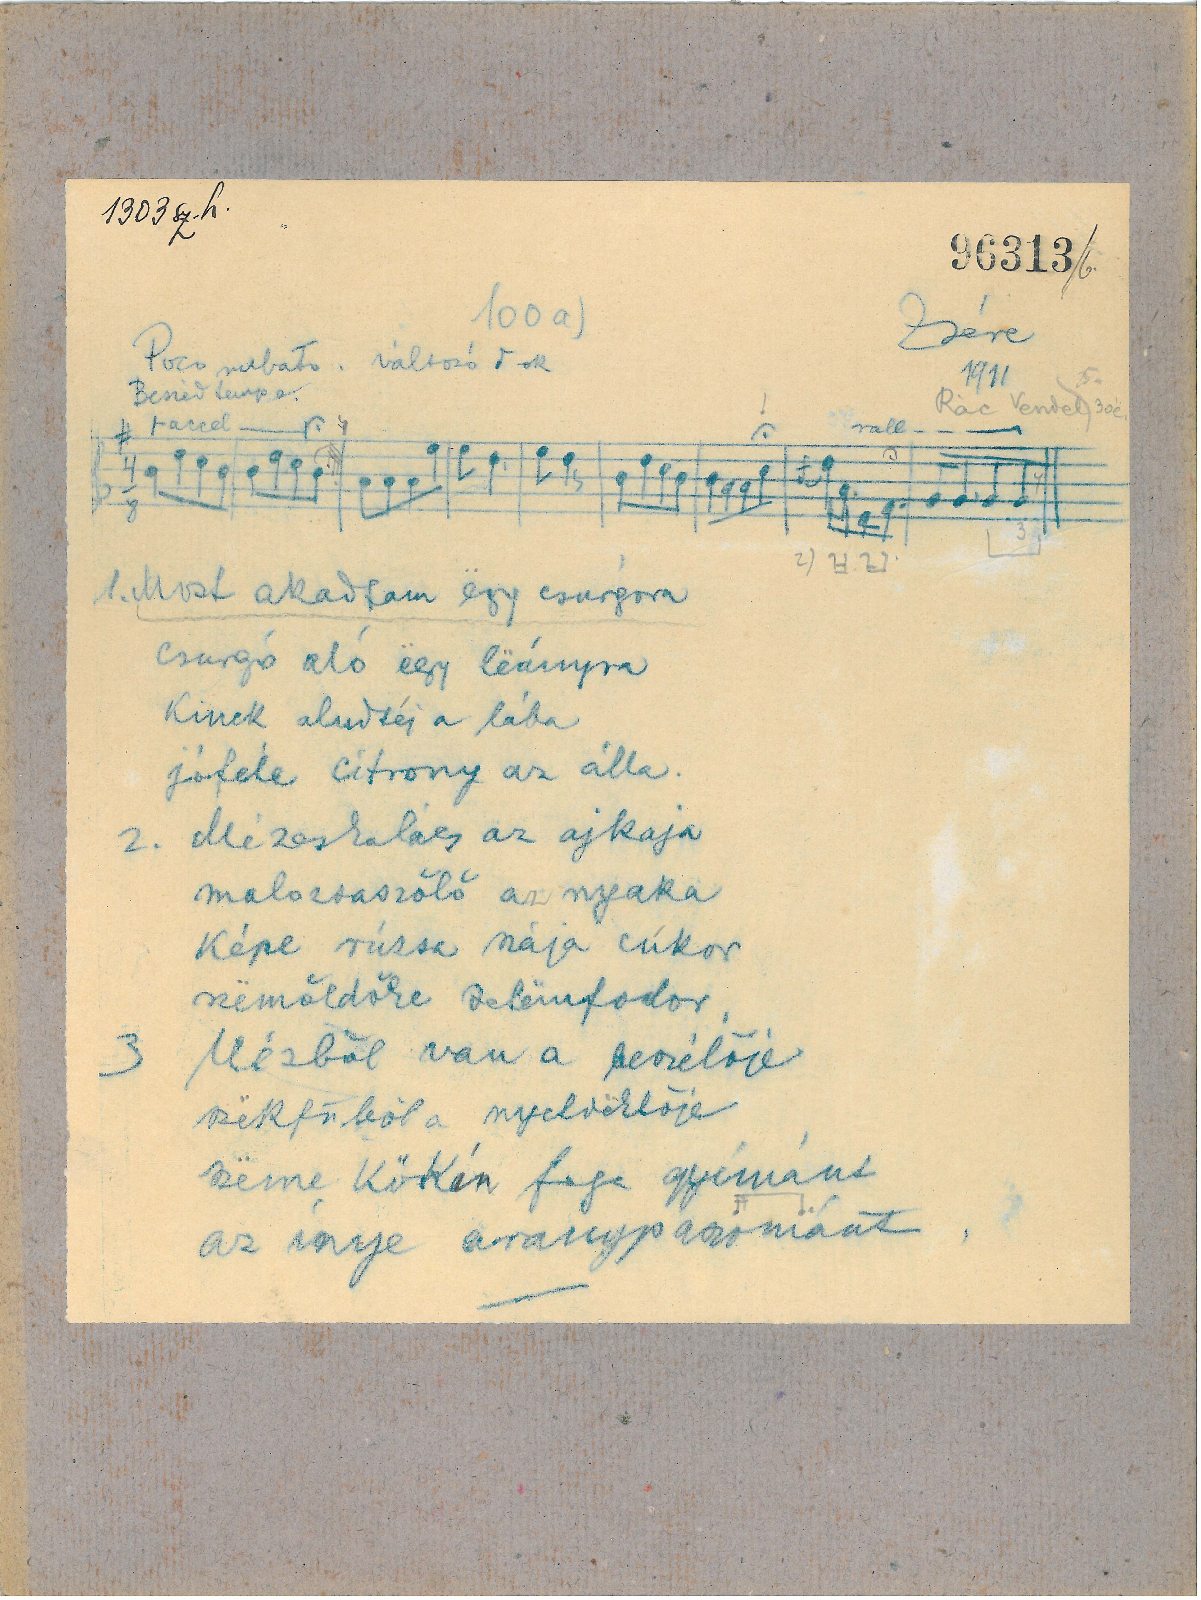 1303 sz. h.
96313/b.
100 a)
Zsére
1911
Poco rubato. változó ♪-ok
Beszéd tempo.
Rác Vendel, 30é.
accel
rall
2)
3
1. Most akadtam ëgy csurgóra
csurgó aló ëgy lëányra
Kinek aludtéj a lába
jóféle citrony az álla.
2. Mézeskalács az ajkaja
malozsaszőlő az nyaka
Képe rúzsa szája cúkor
szëmőldőke selëmfodor,
3 Mézből van a beszélője
szëkfűből a nyelvëklője
szëme Kökín foga gyémánt
az ínye aranypaszománt.